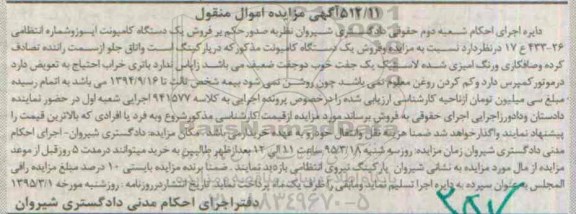 ۵۱۲/۱۱آگهی مزایده اموال منقول
دایره اجرای احکام شعبه دوم حقوقی دادگستری شیروان نظربه صدورحکم بر فروش یک دستگاه کامیونت ایسوزوشماره انتظامی
۲۶-۴۳۳ ع ۱۷ درنظردارد نسبت به مزایده وفروش یک دستگاه کامیونت مذکور که درپارکینگ است واتاق جلو ازسمت راننده تصادف
کرده وصافکاری ورنگ امیزی شده لاستیک یک جفت خوب دوجفت ضعیف می باشد زاپاس ندارد باتری خراب احتیاج به تعویض دارد
درموتور کمپرس دارد وکم کردن روغن معلوم نمی باشد چون روشن نمی شود بیمه شخص ثالث تا ۱۳۹۴/۹/۱۶ می باشد به اتمام رسیده
مبلغ سی میلیون تومان ازناحیه کارشناسی ارزیابی شده رادرخصوص پرونده اجرایی به کلاسه ۹۴۱۵۷۷ اجرایی شعبه اول در حضور نماینده
دادستان ودادورزاجرایی اجرای حقوقی به فروش برساند مورد مزایده ازقیمت کارشناسی مذکورشروع وبه فرد یا افرادی که بالاترین قیمت را
پیشنهاد نمایند واگذارخواهد شد ضمنا هزینه نقل وانتقال خودرو به عهده خریدار می باشد/ مکان مزایده: دادگستری شیروان- اجرای احکام
مدنی دادگستری شیروان زمان مزایده: روزسه شنبه ۹۵/۳/۱۸ ساعت ۱۱ الی ۱۲ بعدازظهر طالبین به خرید میتوانند درمدت ۵ روزقبل از موعد
مزایده از مال مورد مزایده به نشانی شیروان پارکینگ نیروی انتظامی بازدید نمایند . ضمنا برنده مزایده بایستی ۱۰ درصد مبلغ مزایده رافی
المجلس به عنوان سپرده به دایره اجرا تسلیم نماید ومابقی را ظرف یک ماه پرداخت نماید. تاریخ انتشاردرروزنامه : روزشنبه مورخه ۱۳۹۵/۳/۱
دفتراجرای احکام مدنی دادگستری شیروان